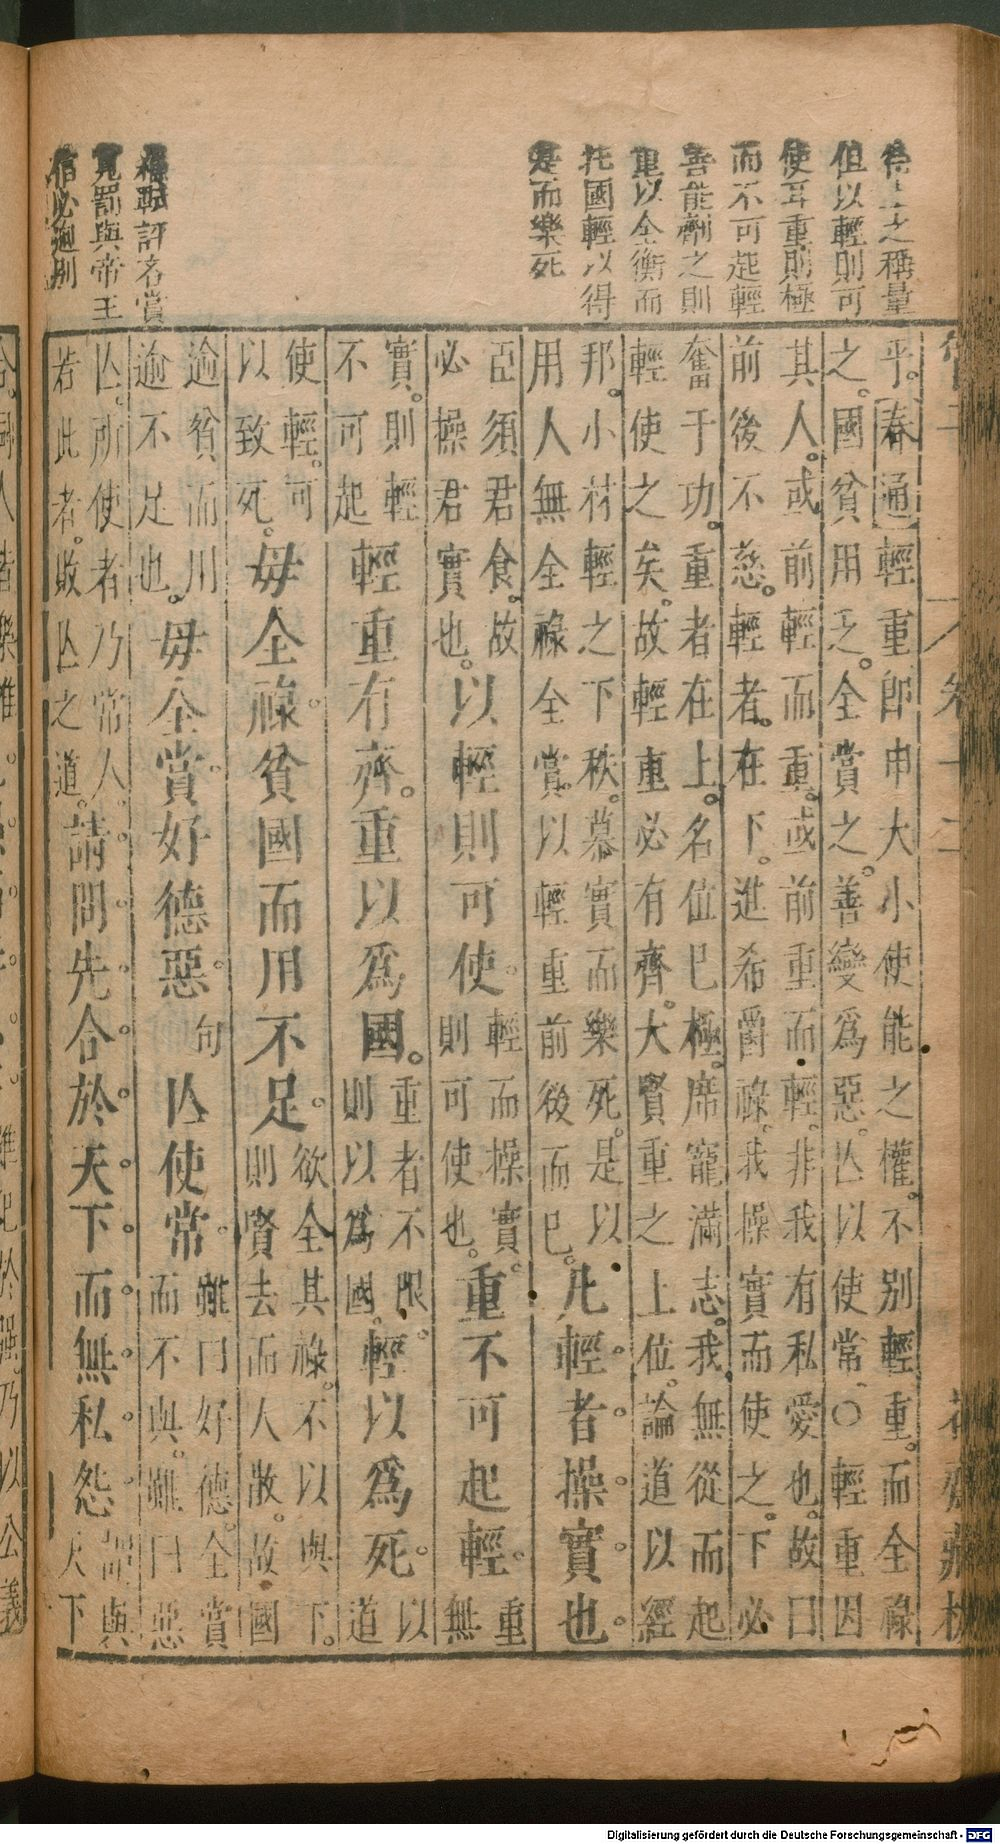 乎。春通輕重郎申大小使能之權。不别輕重。而全祿
之。國貧用乏。全賞之。善變爲惡。亾以使常、〇輕重因
其人。或前輕而重。或前重而輕。非我有私愛也。故曰
前後不慈。輕者。在下。進希爵祿。我操實而使之。下必
奮于功。重者在上。名位巳極。席寵滿志。我無從而起
輕使之矣。故輕重必有齊。大賢重之上位。論道以經
邦。小材輕之下秩。慕實而樂死。是以
用人無全祿全賞。以輕重前後而巳。
凡輕者操實也
亞須君食。故
必操君實也。
以輕則可使
輕而操實。
則可使也。
重不可起輕
重
無
實。則輕
不可起
輕重有齊。重以爲國。
重者不限。
則以爲國。
輕以爲死
以
道
使輕。可
以致死。
毋全祿貧國而用不足
欲全其祿。不以與下。
則賢去而人散。故國
逾貧而用
逾不足也。
毋全賞好德惡
句
亾使常
雖曰好德。全賞
而不與。雖曰惡
亾。所使者乃常人。
若此者。敗亾之道。
請問先合於天下而無私怨
部與
天下
之稱量
但以輕則可
使耳重則極
而不可起輕
善能劑之則
重以全衡而
托國輕以得
是而樂死
評名賞
罰與帝王
信必迥别
管子
八 卷十二
花齋藏板
Digitalisierung gefördert durch die Deutsche Forschungsgemeinschaft - DFG